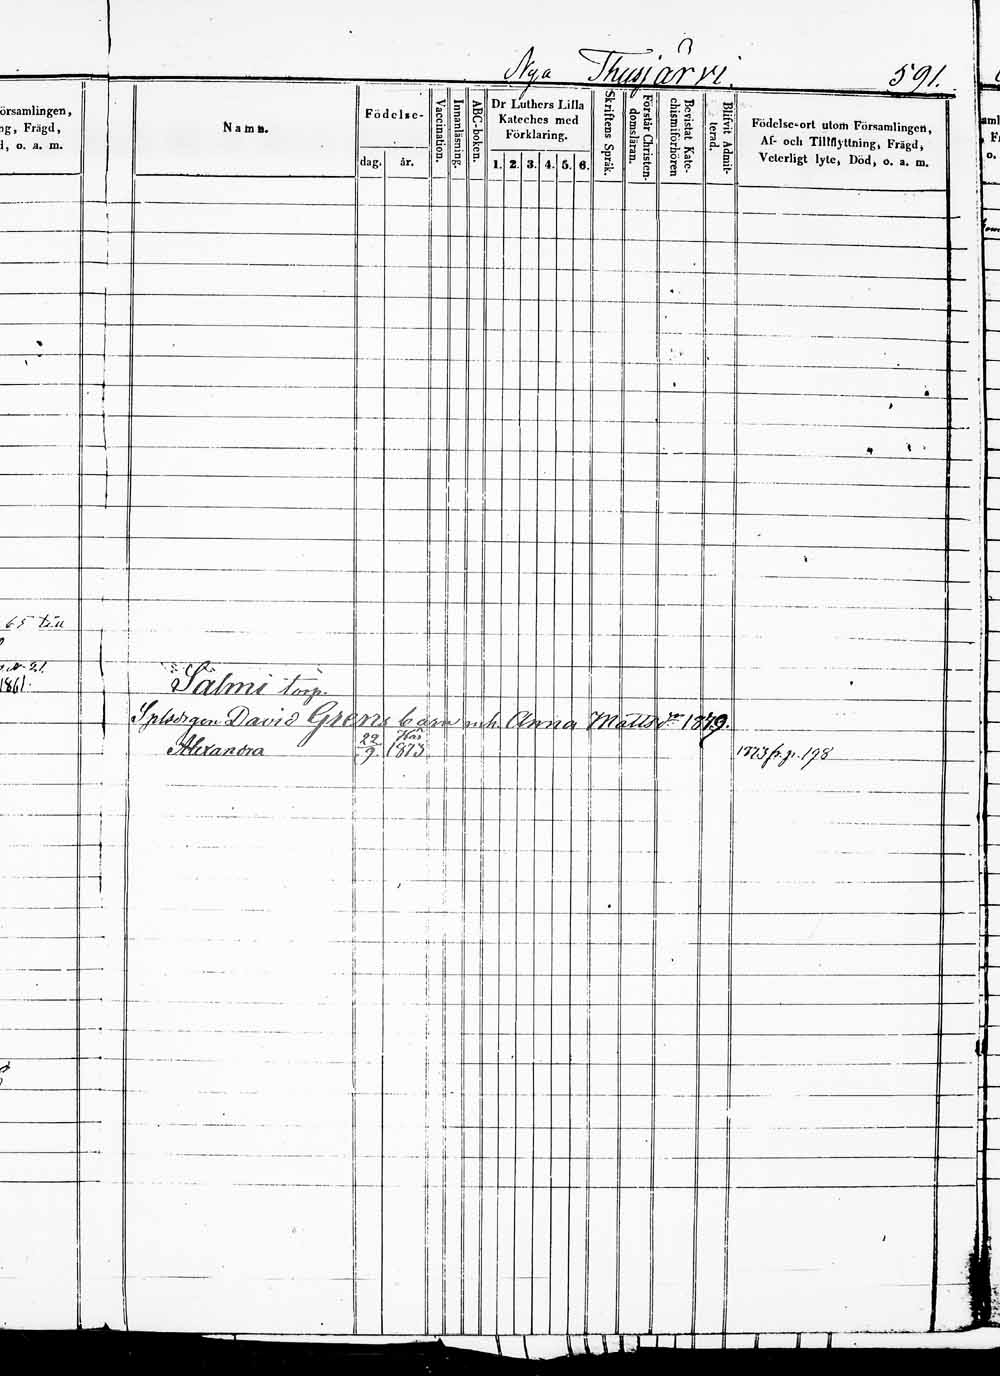 Nya Thusjärvi. 591.
örsamlingen,
ng, Frägd,
d, o. a. m.
Namn.
Födelse-
dag.
år.
Vaccination.
Innanläsning.
ABC-boken.
Dr Luthers Lilla
Kateches med
Förklaring.
1. 2. 3. 4. 5. 6.
Skriftens Språk.
Förstår Christen-
domsläran.
Bevistat Kate-
chismiförhören
Blifvit Admit-
terad.
Födelse-ort utom Församlingen,
Af- och Tillflyttning, Frägd,
Veterligt lyte, Död, o. a. m.
65
21.
1861.
Salmi torp.
David Grens barn mh. Anna Mattsdr 1849.
Alexandra 22/9 1873 1873 fr. p. 198